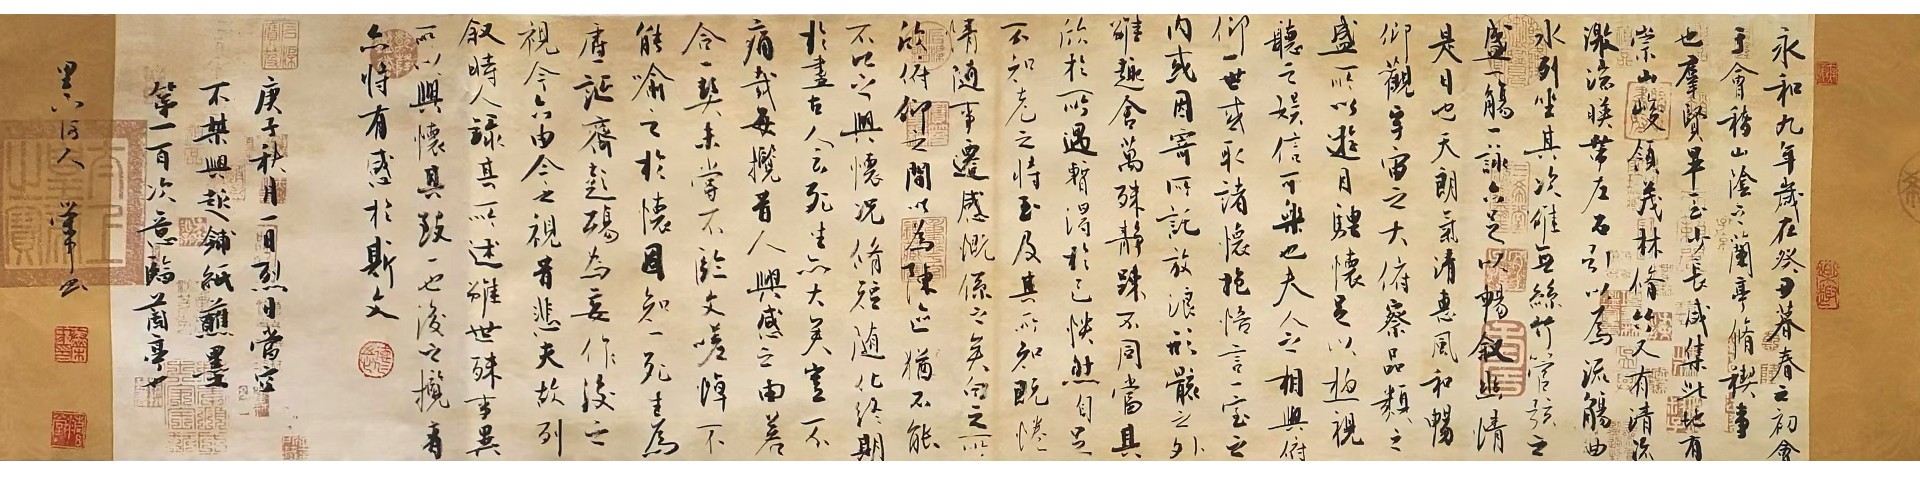 永和九年歲在癸丑暮春之初會
于會稽山陰之蘭亭脩禊事
也羣賢畢至少長咸集此地有
崇山峻領茂林脩竹又有清流
激湍暎帶左右引以為流觴曲
水列坐其次雖無絲竹管弦之
盛一觴一詠亦足以暢叙幽情
是日也天朗氣清惠風和暢
仰觀宇宙之大俯察品類之
盛所以遊目騁懷足以極視
聽之娛信可樂也夫人之相與俯
仰一世或取諸懷抱悟言一室之
內或因寄所託放浪形骸之外
雖趣舍萬殊靜躁不同當其
欣於所遇暫得於己怏然自足
不知老之將至及其所之既惓
情隨事遷感慨係之矣向之所
欣俯仰之間以為陳迹猶不能
不以之興懷況脩短隨化終期
於盡古人云死生亦大矣豈不
痛哉每攬昔人興感之由若
合一契未嘗不臨文嗟悼不
能喻之於懷固知一死生為
虛誕齊彭殤為妄作後之
視今亦由今之視昔悲夫故列
叙時人錄其所述雖世殊事異
所以興懷其致一也後之攬者
亦將有感於斯文
庚子秋月一日烈日當空
不禁興起鋪紙蘸墨
第一百次意臨蘭亭也
人
書